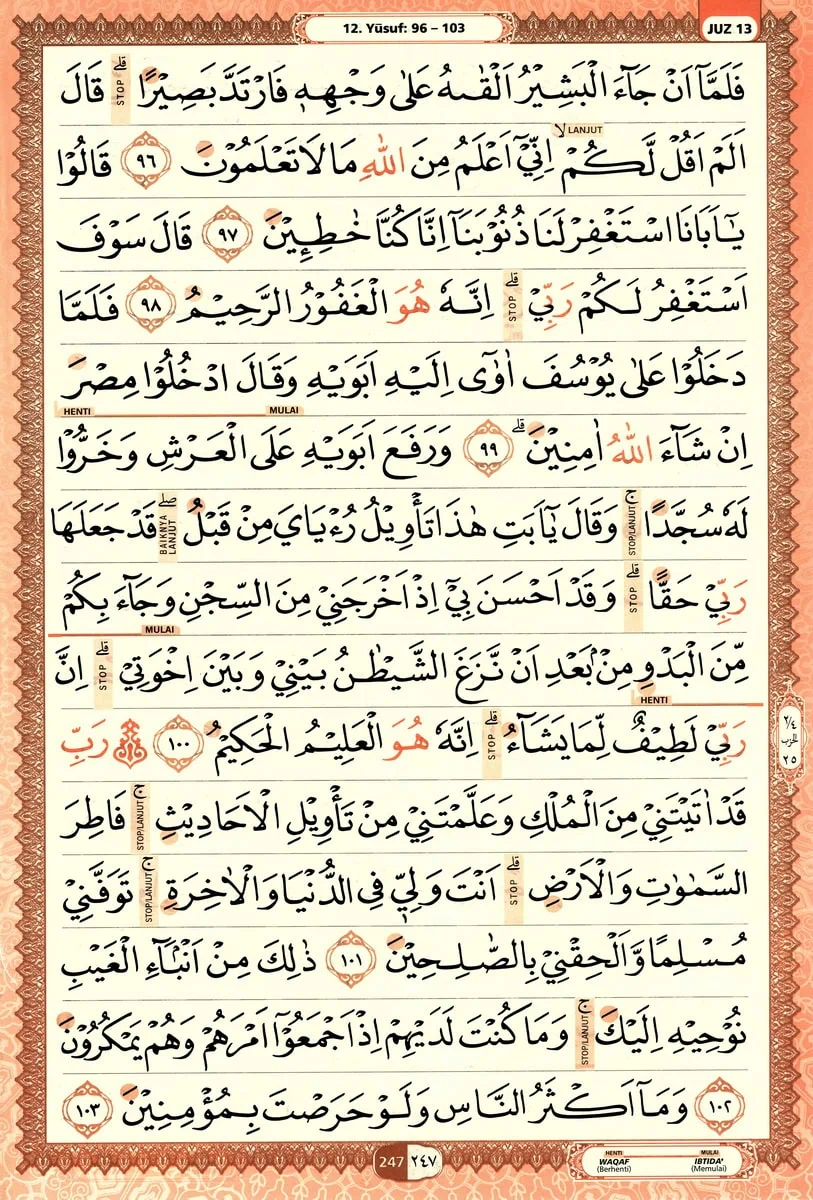 12. Yūsuf: 96 – 103
JUZ 13
فَلَمَّآ اَنْ جَاۤءَ الْبَشِيْرُ اَلْقٰىهُ عَلٰى وَجْهِهٖ فَارْتَدَّ بَصِيْرًاۗ STOP قَالَ
اَلَمْ اَقُلْ لَّكُمْ اِنِّيْٓ اَعْلَمُ مِنَ اللّٰهِ مَا لَا تَعْلَمُوْنَ ٩٦ قَالُوْا
لا LANJUT
يٰٓاَبَانَا اسْتَغْفِرْ لَنَا ذُنُوْبَنَآ اِنَّا كُنَّا خٰطِـِٕيْنَ ٩٧ قَالَ سَوْفَ
اَسْتَغْفِرُ لَكُمْ رَبِّيْۗ STOP اِنَّهٗ هُوَ الْغَفُوْرُ الرَّحِيْمُ ٩٨ فَلَمَّا
دَخَلُوْا عَلٰى يُوْسُفَ اٰوٰٓى اِلَيْهِ اَبَوَيْهِ وَقَالَ ادْخُلُوْا مِصْرَ
MULAI HENTI
اِنْ شَاۤءَ اللّٰهُ اٰمِنِيْنَۗ ٩٩ وَرَفَعَ اَبَوَيْهِ عَلَى الْعَرْشِ وَخَرُّوْا
لَهٗ سُجَّدًاۚ STOP/LANJUT وَقَالَ يٰٓاَبَتِ هٰذَا تَأْوِيْلُ رُءْيَايَ مِنْ قَبْلُۖ BAIKNYA LANJUT قَدْ جَعَلَهَا
رَبِّيْ حَقًّاۗ STOP وَقَدْ اَحْسَنَ بِيْٓ اِذْ اَخْرَجَنِيْ مِنَ السِّجْنِ وَجَاۤءَ بِكُمْ
MULAI
مِّنَ الْبَدْوِ مِنْۢ بَعْدِ اَنْ نَّزَغَ الشَّيْطٰنُ بَيْنِيْ وَبَيْنَ اِخْوَتِيْۗ STOP اِنَّ
HENTI
رَبِّيْ لَطِيْفٌ لِّمَا يَشَاۤءُۗ STOP اِنَّهٗ هُوَ الْعَلِيْمُ الْحَكِيْمُ ١٠٠ رَبِّ
قَدْ اٰتَيْتَنِيْ مِنَ الْمُلْكِ وَعَلَّمْتَنِيْ مِنْ تَأْوِيْلِ الْاَحَادِيْثِۚ STOP/LANJUT فَاطِرَ
السَّمٰوٰتِ وَالْاَرْضِۗ STOP اَنْتَ وَلِيّٖ فِى الدُّنْيَا وَالْاٰخِرَةِۚ STOP/LANJUT تَوَفَّنِيْ
مُسْلِمًا وَّاَلْحِقْنِيْ بِالصّٰلِحِيْنَ ١٠١ ذٰلِكَ مِنْ اَنْۢبَاۤءِ الْغَيْبِ
نُوْحِيْهِ اِلَيْكَۚ STOP/LANJUT وَمَا كُنْتَ لَدَيْهِمْ اِذْ اَجْمَعُوْٓا اَمْرَهُمْ وَهُمْ يَمْكُرُوْنَ
١٠٢ وَمَآ اَكْثَرُ النَّاسِ وَلَوْ حَرَصْتَ بِمُؤْمِنِيْنَ ١٠٣
٢/٤
الحزب
٢٥
247 ٢٤٧
HENTI
WAQAF
(Berhenti)
MULAI
IBTIDA'
(Memulai)